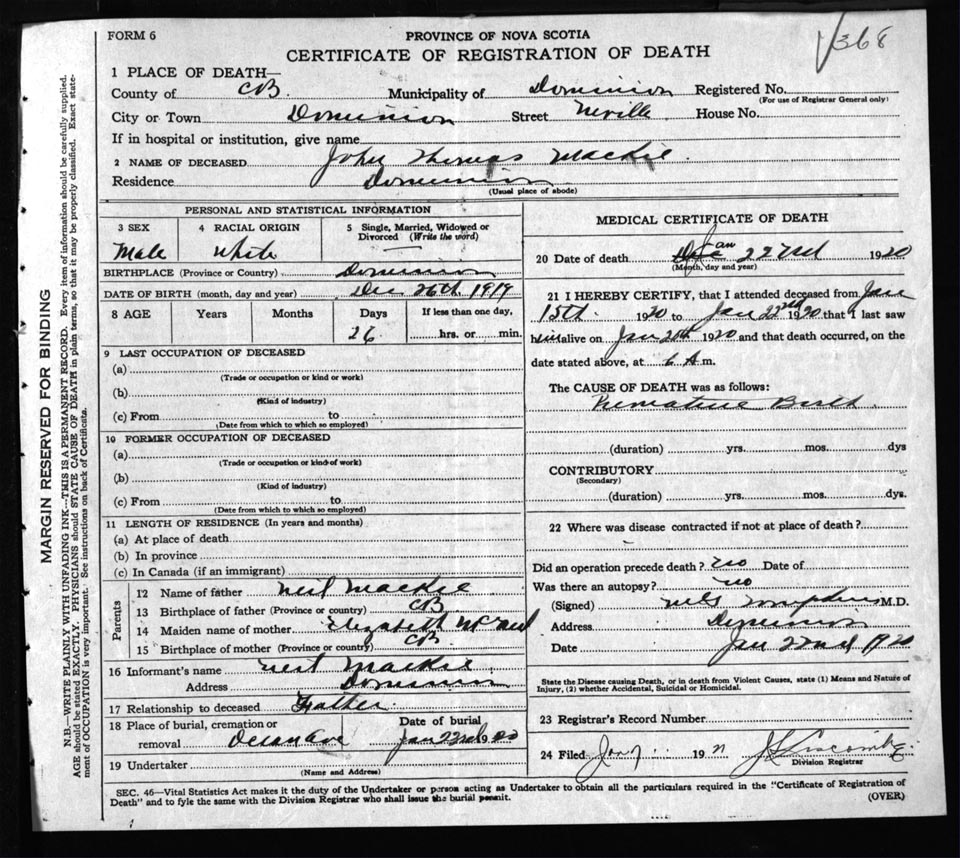 FORM 6
PROVINCE OF NOVA SCOTIA
CERTIFICATE OF REGISTRATION OF DEATH
368
1 PLACE OF DEATH—
County of CB. Municipality of Dominion Registered No.
(For use of Registrar General only)
City or Town Dominion Street Neville House No.
If in hospital or institution, give name
2 NAME OF DECEASED John Thomas Mackie
Residence Dominion
(Usual place of abode)
PERSONAL AND STATISTICAL INFORMATION
3 SEX 4 RACIAL ORIGIN 5 Single, Married, Widowed or Divorced (Write the word)
Male White —
BIRTHPLACE (Province or Country) Dominion
DATE OF BIRTH (month, day and year) Dec 26th 1919
8 AGE Years Months Days If less than one day,
26 hrs. or min.
9 LAST OCCUPATION OF DECEASED
(a)
(Trade or occupation or kind or work)
(b)
(Kind of industry)
(c) From to
(Date from which to which so employed)
10 FORMER OCCUPATION OF DECEASED
(a)
(Trade or occupation or kind of work)
(b)
(Kind of industry)
(c) From to
(Date from which to which so employed)
11 LENGTH OF RESIDENCE (In years and months)
(a) At place of death
(b) In province
(c) In Canada (if an immigrant)
Parents
12 Name of father Neil Mackie
13 Birthplace of father (Province or country) CB
14 Maiden name of mother Elizabeth McNeil
15 Birthplace of mother (Province or country) CB
16 Informant's name Neil Mackie
Address Dominion
17 Relationship to deceased Father
18 Place of burial, cremation or removal Ocean Ave
Date of burial
Jan 23rd 1920
19 Undertaker
(Name and Address)
MEDICAL CERTIFICATE OF DEATH
20 Date of death Jan 22nd 1920
(Month, day and year)
21 I HEREBY CERTIFY, that I attended deceased from Jan
15th 1920 to Jan 22nd 1920 that I last saw
him alive on Jan 20th 1920 and that death occurred, on the
date stated above, at 6 A m.
The CAUSE OF DEATH was as follows:
Premature Birth
(duration) yrs. mos. dys
CONTRIBUTORY
(Secondary)
(duration) yrs. mos. dys.
22 Where was disease contracted if not at place of death?
Did an operation precede death? no Date of
Was there an autopsy? no
(Signed) M.D.
Address Dominion
Date Jan 22nd 1920
State the Disease causing Death, or in death from Violent Causes, state (1) Means and Nature of
Injury, (2) whether Accidental, Suicidal or Homicidal.
23 Registrar's Record Number
24 Filed Jan 7 19 21
Division Registrar
SEC. 46—Vital Statistics Act makes it the duty of the Undertaker or person acting as Undertaker to obtain all the particulars required in the "Certificate of Registration of
Death" and to fyle the same with the Division Registrar who shall issue the burial permit.
(OVER)
MARGIN RESERVED FOR BINDING
N.B.—WRITE PLAINLY WITH UNFADING INK—THIS IS A PERMANENT RECORD. Every item of information should be carefully supplied.
AGE should be stated EXACTLY. PHYSICIANS should STATE CAUSE OF DEATH in plain terms, so that it may be properly classified. Exact state-
ment of OCCUPATION is very important. See instructions on back of Certificate.